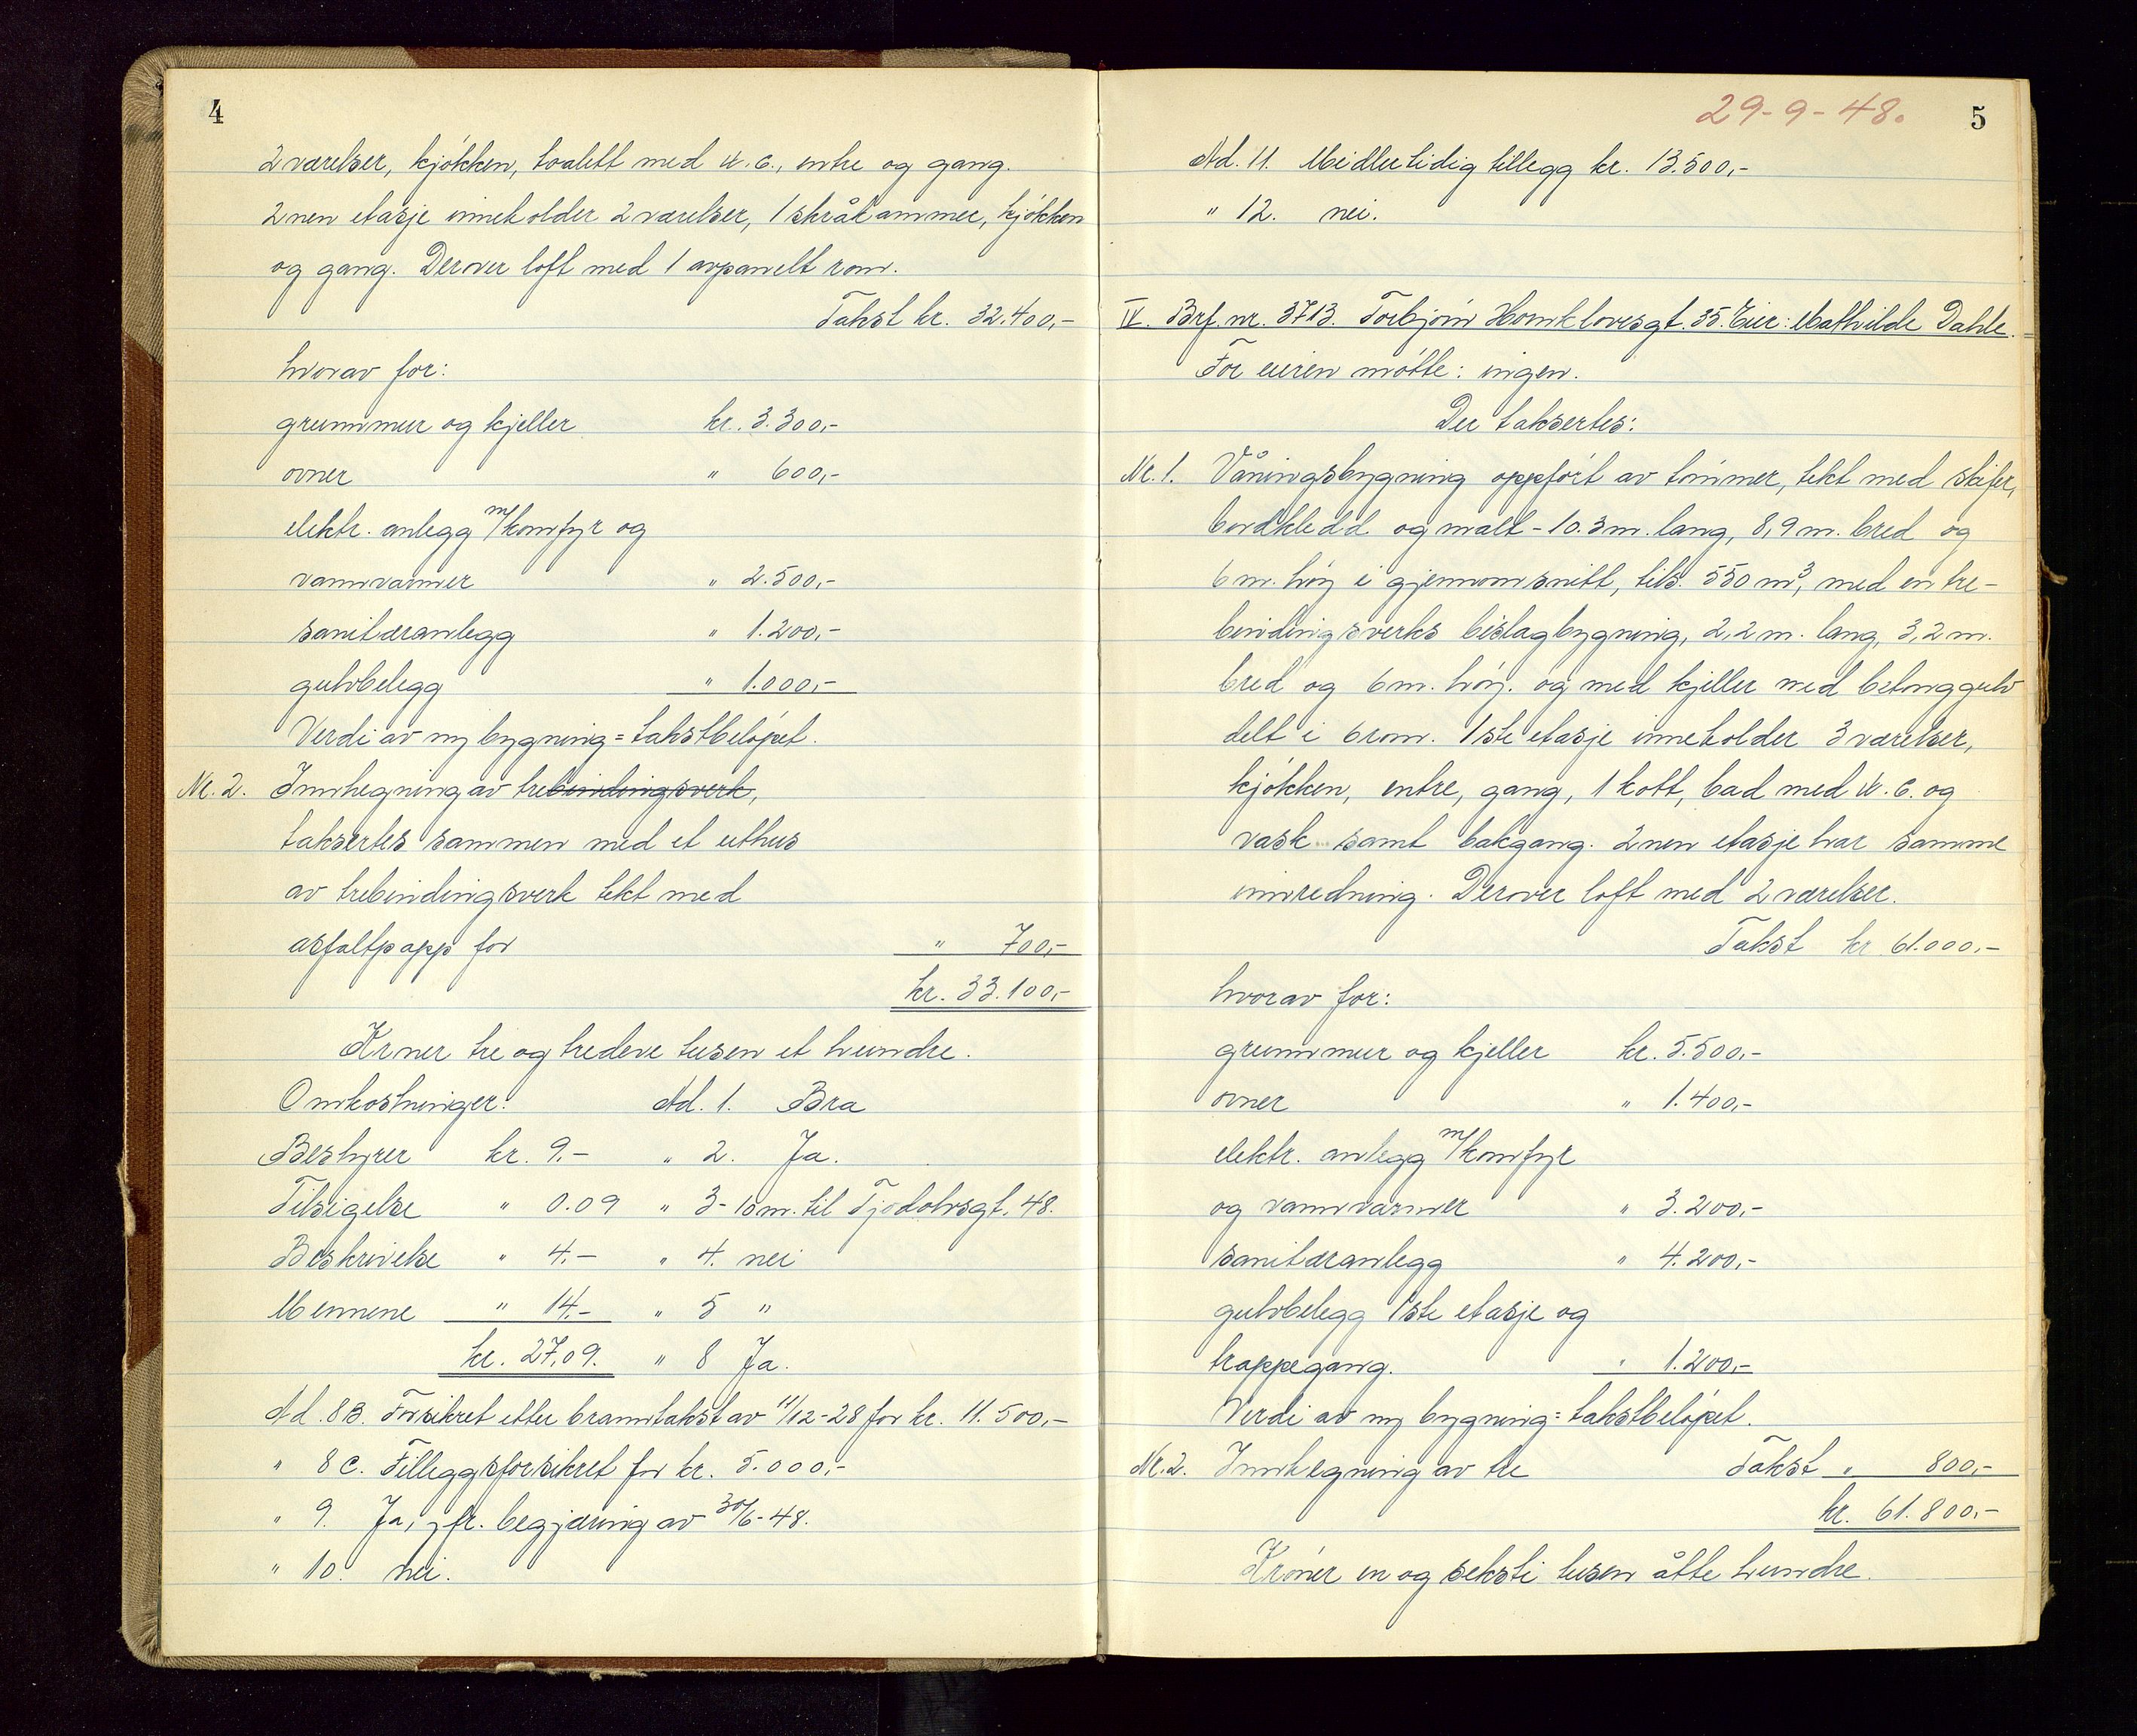 4
2 værelser, kjökken, toalett med W.C., entre og gang.
2nen etasje inneholder 2 værelser, 1 skråkammer, kjökken
og gang. Derover loft med 1 avpanelt rom.
Takst kr. 32.400,-
hvorav for:
grunnmur og kjeller kr. 3.300,-
ovner " 600,-
elektr. anlegg m/komfyr og
vannvarmer " 2.500,-
sanitæranlegg " 1.200,-
gulvbelegg " 1.000,-
Verdi av ny bygning = takstbelöpet.
Nr. 2. Innhegning av trebindingsverk,
taksertes sammen med et uthus
av trebindingsverk tekt med
asfaltpapp for " 700,-
kr. 33.100,-
Kroner tre og tredeve tusen et hundre.
Omkostninger: Ad. 1. Bra
Bestyrer kr. 9.- " 2. Ja.
Tilsigelse " 0.09 " 3 - 10 m. til Tjodolvsgt. 48.
Beskrivelse " 4.- " 4. nei
Mennene " 14.- " 5 "
kr. 27,09. " 8 Ja.
Ad. 8B. Forsikret etter branntakst av 11/12-28 for kr. 11.500,-
" 8C. Tilleggsforsikret for kr. 5.000,-
" 9. Ja, jfr. begjæring av 30/6-48.
" 10. nei.
29-9-48. 5
Ad. 11. Midlertidig tillegg kr. 13.500,-
" 12. nei.
IV. Brf. nr. 3713. Torbjörn Hornklovesgt. 35. Eier: Mathilde Dahle.
For eieren mötte: ingen.
Der taksertes:
Nr. 1. Våningsbygning oppfört av tömmer, tekt med skifer,
bordkledd og malt - 10.3 m. lang, 8,9 m. bred og
6 m. höy i gjennomsnitt, tils. 550 m³, med en tre-
bindingsverks bislagbygning, 2,2 m. lang, 3,2 m.
bred og 6 m. höy. og med kjeller med betonggulv
delt i 6 rom. 1ste etasje inneholder 3 værelser,
kjökken, entre, gang, 1 kott, bad med W.C. og
vask samt bakgang. 2nen etasje har samme
innredning. Derover loft med 2 værelser.
Takst kr. 61.000,-
hvorav for:
grunnmur og kjeller kr. 5.500,-
ovner " 1.400,-
elektr. anlegg m/komfyr
og vannvarmer " 3.200,-
sanitæranlegg " 4.200,-
gulvbelegg 1ste etasje og
trappegang. " 1.200,-
Verdi av ny bygning = takstbelöpet.
Nr. 2. Innhegning av tre Takst " 800,-
kr. 61.800,-
Kroner en og seksti tusen åtte hundre.